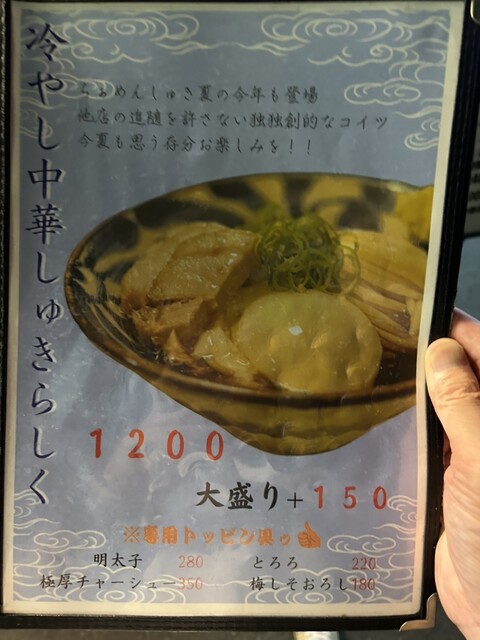 冷やし中華しゅきらしく
らぁめんしゅき夏の今年も登場
他店の追随を許さない独独創的なコイツ
今夏も思う存分お楽しみを！！
1200
大盛り+150
※専用トッピン具ゥ👍
明太子 280 とろろ 220
極厚チャーシュー350 梅しそおろし180